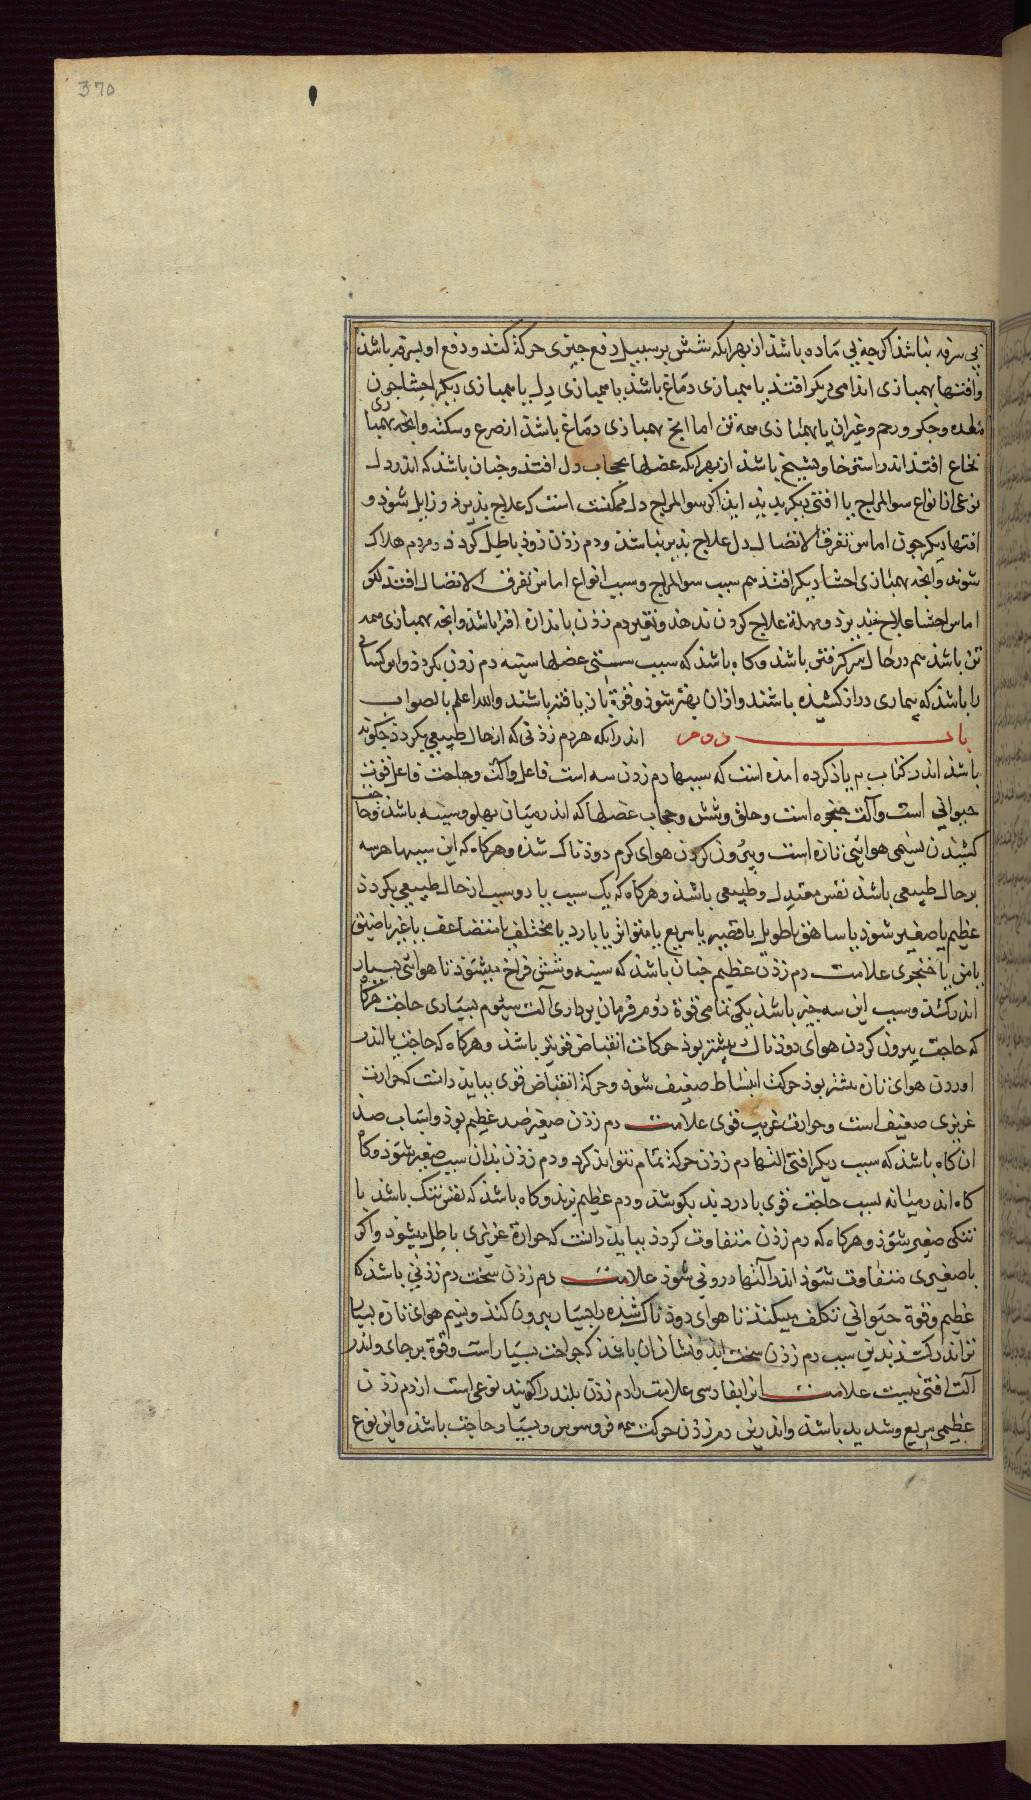 370
بی سرفه نباشد اکرجه بی مّاده باشد از بهر انکه شش بر سبیل دفع جیزی حرکة کند و دفع او بسرفه باشد
وافتها بهمبازی اندامی دیکر افتد یا بهمبازی دماغ باشد یا بهمبازی دل یا بهمبازی دیکر احشا جون
معده وجکر و رحم وغیر ان یا بهمبازی همه تن اما انج بهمبازی دماغ باشد از صرع وسکته وانجه بهمبازی
نخاع افتد اندر استرخا وتشنج باشد از بهر انکه عضلها حجاب دل افتد وجنان باشد که اندر دل
نوعی از انواع سوالمزاج یا افتی دیکر بدید اید اکر سوالمزاج دل ممکنست است که علاج بذیرد و زایل شود و
افتهاء دیکر جون اماس تفرق الاتصال دل علاج بذیر نباشد ودم زدن زود باطل کردد و مردم هلاک
شوند وانجه بهمبازی احشا دیکر افتد هم سبب سوالمزاج وسبب انواع اماس تفرق الاتصال افتد لکن
اماس احشا علاج بذیرد ومهلة علاج کردن بدهد وتغیر دم زدن باندازه افة باشد وانجه بهمبازی همه
تن باشد هم در حال مرکز فتن باشد وکاه باشد که سبب سستی عضلها سینه دم زدن بکردد واین کسانی
را باشد که بیماری دراز کشیده باشند وازان بهتر شود وقوة باز یافته باشند والله اعلم بالصواب
باب دوم اندر انکه هر دم زدنی که از حال طبیعی بکردد جکونه
باشد اندر کتاب دم یاذ کرده امذه است که سببها دم زدن سه است فاعل وآلت وحاجت فاعل قوت
حیوانی است وآلت حنجره است وحلق وشش وحجاب عضلها که اندر میان بهلو وسینه باشد وحاجت
کشیدن نسیمی هوائی تازه است وبیرون کردن هوای کرم دودناک شده وهرکاه که این سببها هرسه
بر حال طبیعی باشد نفس معتدل وطبیعی باشد وهرکاه که یک سبب یا دو سبب از حال طبیعی بکردد
عظیم یا صغیر شود یا ساهق یا طویل یا قصیر یا سریع یا متواتر یا بارد یا مختلف یا متضاعف یا غیر یا ضیق
یا منی یا خنجری علامت دم زدن عظیم جنان باشد که سینه وشش فراخ میشود تا هوائی بسیار
اندر کشد وسبب این سه جیز باشد یکی تمامی قوة دوم فرمان برداری آلت سیوم بسیاری حاجت هرکاه
که حاجت بیرون کردن هوای دودناک بیشتر بود حرکات انقباض قوی تر باشد وهرکاه که حاجت باندر
اوردن هوای تازه بیشتر بود حرکت انبساط ضعیف شود وحرکة انقباض قوی بباید دانست که حرارت
غریزی ضعیف است وحرارت غریب قوی علامت دم زدن صغیر ضد عظیم بود واسباب ضد
ان کاه باشد که سبب دیکر افتی التها دم زدن حرکة تمام نتواند کرد ودم زدن بدان سبب صغیر شود وکاه
کاه اندر میانه بسبب حاجت قوی با درد بد بکوشد ودم عظیم بزند وکاه باشد که نفس تنک باشد با
تنکی صغیر شود وهرکاه که دم زدن متفاوت کردد بباید دانست که حرارة غریزی باطل میشود واکر
با صغیری متفاوت شود اندر آلتها درونی شود علامت دم زدن سخت دم زدنی باشد که
عظیم وقوة حیوانی تکلف میکند تا هوای دودناک شده را بسیار بیرون کند ونسیم هوای تازه بسیار
تواند کشد بدین سبب دم زدن سخت اید ونشان ان باشد که حراجت بسیار است وقوة بر جای واندر
آلت افتی نیست علامت انرا بفارسی علامت را دم زدن بلند را کویند نوعی است از دم زدن
عظیمی سریع وشدید باشد واندرین دم زدن حرکت همه بر وسوس وبسیار حاجت باشد واین نوع